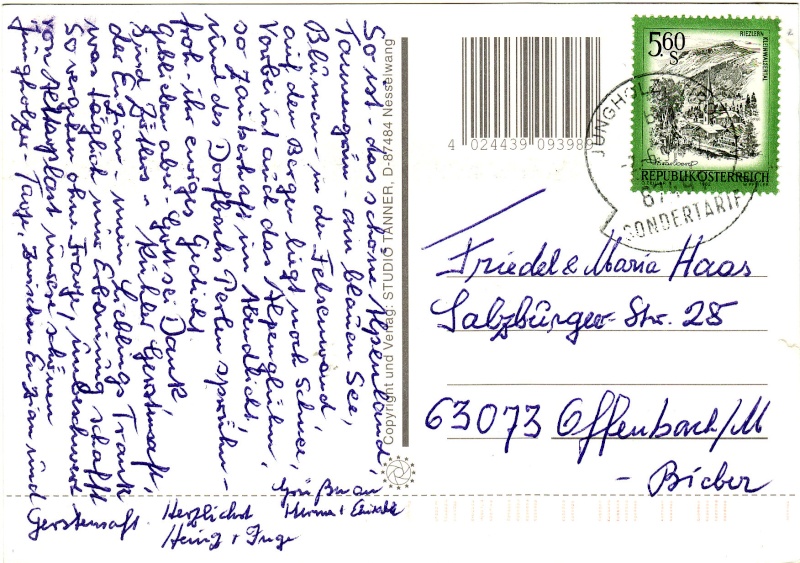 So ist - das schöne Alpenland,
Tannengrün - am blauen See,
Blumen - in der Felsenwand,
auf den Bergen liegt noch Schnee,
Vorbei ist auch das Alpenglühn,
so Zauberhaft im Abendlicht,
und des Dorfbachs Perlen sprühn -
froh - ihr ewiges Gedicht
Geblieben aber - Gott sei Dank,
sind Zötlers - kühler Gerstensaft,
der Enzian - mein Lieblings Trank
was täglich nur Erbauung schafft
So vergehen ohne Frage, unbeschwert
von Alltagslast unsre schönen
Jungholzer-Tage, zwischen Enzian und
Gerstensaft.
Herzlichst
Heinz + Inge
Grüße an
Copyright und Verlag: STUDIO TANNER, D-87484 Nesselwang
4 024439 093989
RIEZLERN
KLEINWALSERTAL
5,60
S
REPUBLIK ÖSTERREICH
JUNGHOLZ
SONDERTARIF
Friedel & Maria Haas
Salzburger Str. 28
63073 Offenbach/M
- Bieber